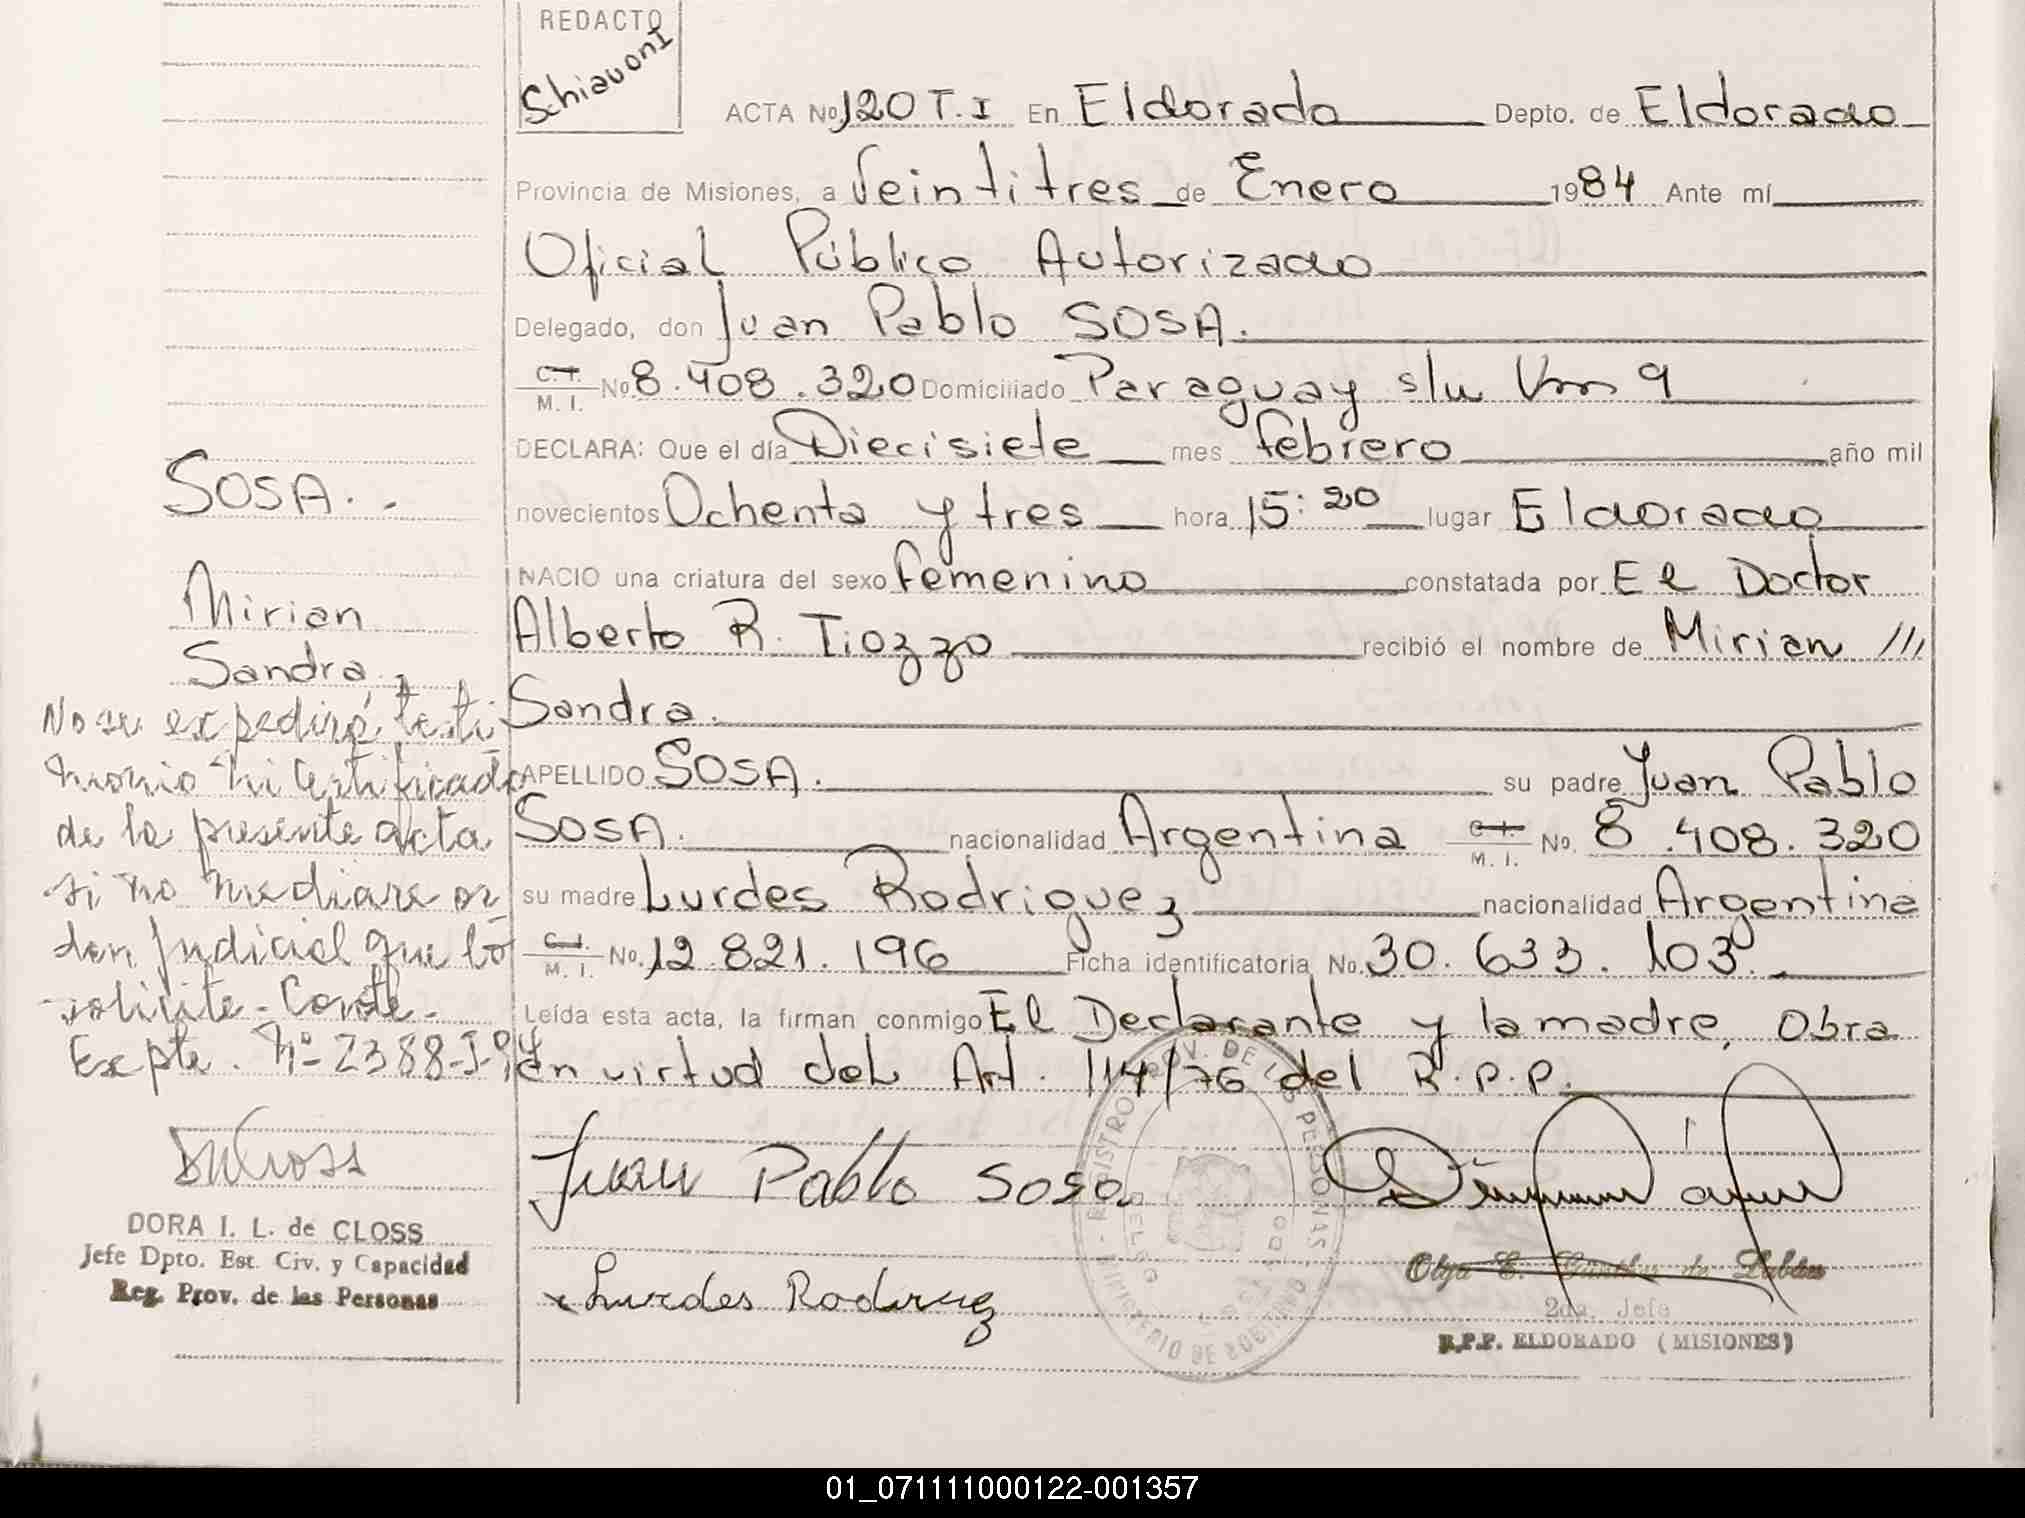 REDACTO
Schiavoni
ACTA No 120 T.I En Eldorado Depto. de Eldorado
Provincia de Misiones, a Veintitres de Enero 1984 Ante mí
Oficial Público Autorizado
Delegado, don Juan Pablo SOSA.
C. I. M. I. No 8.408.320 Domiciliado Paraguay s/n Km 9
DECLARA: Que el día Diecisiete mes febrero año mil
novecientos Ochenta y tres hora 15:20 lugar Eldorado
NACIO una criatura del sexo femenino constatada por El Doctor
Alberto R. Tiozzo recibió el nombre de Mirian ///
Sandra.
APELLIDO SOSA. su padre Juan Pablo
SOSA. nacionalidad Argentina C. I. M. I. No. 8.408.320
su madre Lurdes Rodriguez nacionalidad Argentina
C. I. M. I. No. 12.821.196 Ficha identificatoria No. 30.633.103.
Leída esta acta, la firman conmigo El Declarante y la madre, Obra
en virtud del Art. 114/76 del R.P.P.
SOSA.-
Mirian
Sandra
No se expedirá testi
monio ni certificado
de la presente acta
si no mediare or
den judicial que lo
solicite - Conste -
Expte. Nº 2388-J-94
DORA I. L. de CLOSS
Jefe Dpto. Est. Civ. y Capacidad
Reg. Prov. de las Personas
Juan Pablo Sosa
Lurdes Rodriguez
REGISTRO PROV. DE LAS PERSONAS - MINISTERIO DE GOBIERNO
Olga E. Günther de
2da. Jefe
R.P.P. ELDORADO (MISIONES)
01_071111000122-001357